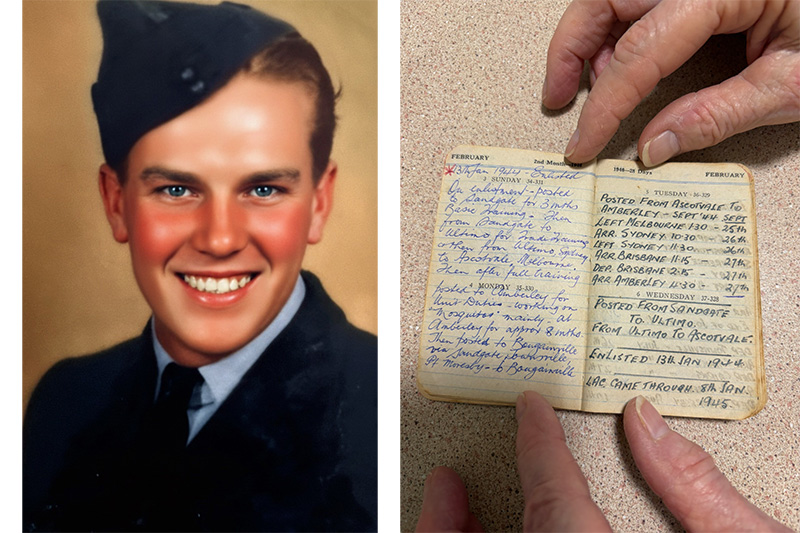 FEBRUARY 2nd Month
* 13th Jan 1944 Enlisted
2 SUNDAY 34-331
On enlistment - posted
to Sandgate for 3 mths
Basic Training - Then
from Sandgate to
Ultimo for Trade Training
then from Ultimo, Sydney
to Ascotvale Melbourne.
Then after full training
MONDAY 35-330
posted to Amberley for
Unit Duties - working on
"Mosquitos" mainly - At
Amberley for approx 8 mths.
Then posted to Bougainville
via Sandgate, Townsville,
Pt Moresby - to Bougainville
1948-29 Days FEBRUARY
3 TUESDAY 34-329
POSTED FROM ASCOTVALE TO
AMBERLEY - SEPT 44 SEPT
LEFT MELBOURNE 1.30 - 25th
ARR. SYDNEY 10.30 - 26th
LEFT SYDNEY 11.30 - 26th
ARR BRISBANE 11.15 - 27th
DEP. BRISBANE 2.15 - 27th
ARR AMBERLEY 4.30 - 27th
6 WEDNESDAY 37-328
POSTED FROM SANDGATE
TO ULTIMO.
FROM ULTIMO TO ASCOTVALE.
ENLISTED 13TH JAN 1944
LAC CAME THROUGH 8th JAN.
1945.